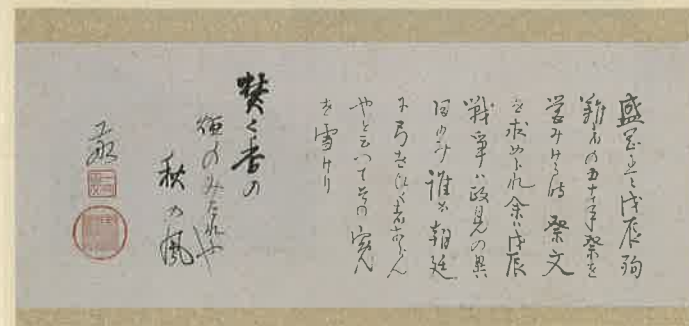 盛岡にて戊辰殉
難者の五十年祭を
営みける時祭文
を求められ余は戊辰
戦争は政見の異
同のみ誰か朝廷
に弓をひく者あらん
やと云って其の冤
を雪けり
焚く香の
煙のみたれや
秋の風